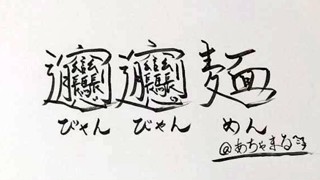 𰻞𰻞麺
びゃん びゃん めん
@あちゃまる